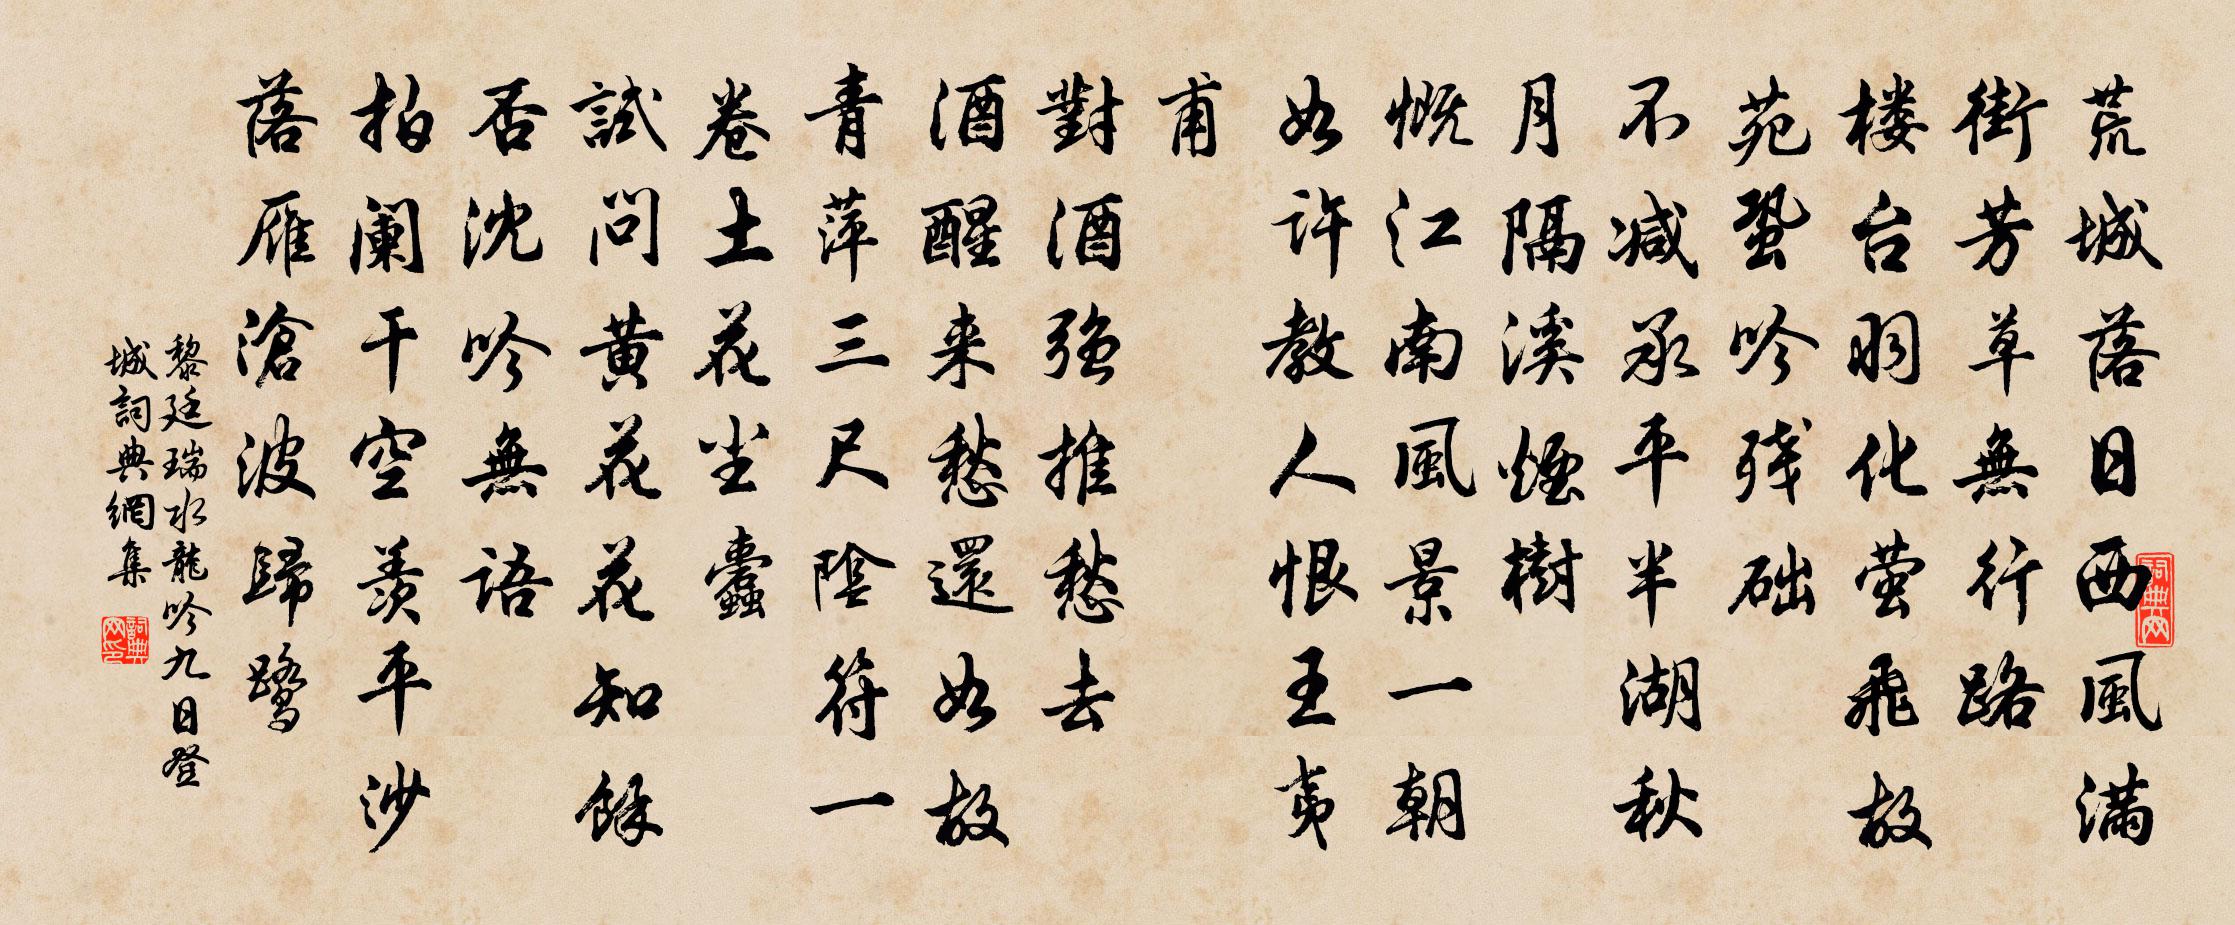 荒城落日西風满
街芳草無行路
楼台羽化萤飛故
苑蛩吟残础
不减承平半湖秋
月隔溪煙樹
慨江南風景一朝
如许教人恨王夷
甫
對酒强推愁去
酒醒来愁還如故
青萍三尺陰符一
卷土花尘蠹
試问黄花花知餘
否沈吟無语
拍阑干空羡平沙
落雁滄波歸鹭
黎廷瑞水龍吟九日登
城詞典網集
词典网
詞典网印